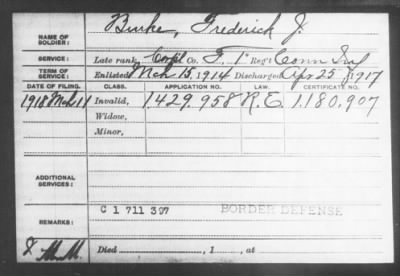 Burke, Frederick J.
NAME OF SOLDIER:
SERVICE: Late rank, Corpl Co. F, 1" Reg't Conn Inf
TERM OF SERVICE: Enlisted Mch 15, 1914 Discharged Apr 25, 1917
DATE OF FILING. CLASS. APPLICATION NO. LAW. CERTIFICATE NO.
1918 Mch 11 Invalid, 1.429.958 R.E. 1.180.907
Widow,
Minor,
ADDITIONAL SERVICES:
C 1 711 397 BORDER DEFENSE
REMARKS:
M.M. Died , 1 , at